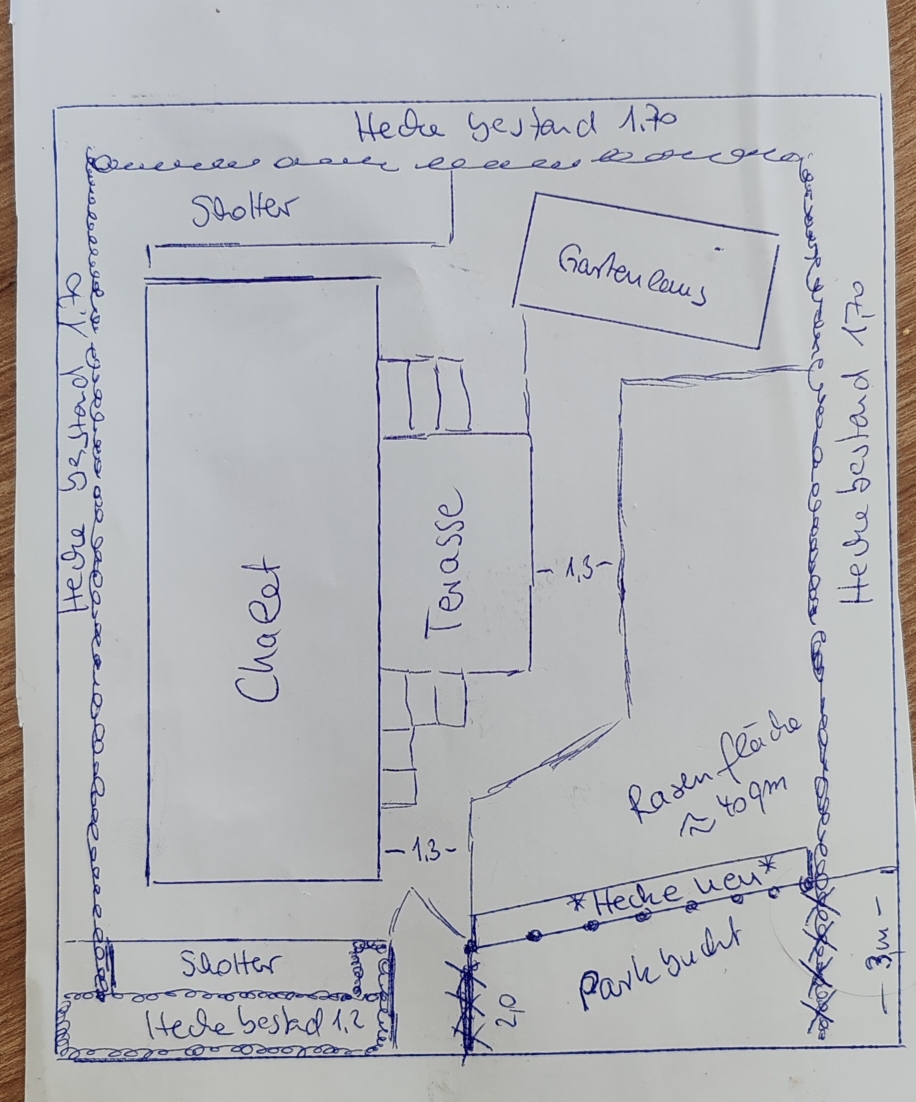 Hecke bestand 1,70
Shotter
Gartenhaus
Hecke bestand 1.70
Hecke bestand 1,70
Chalet
Terasse
- 1,3 -
Rasenfläche
≈ 40qm
- 1.3 -
*Hecke neu*
Shotter
Parkbucht
- 3m -
2,0
Hecke bestad 1,2